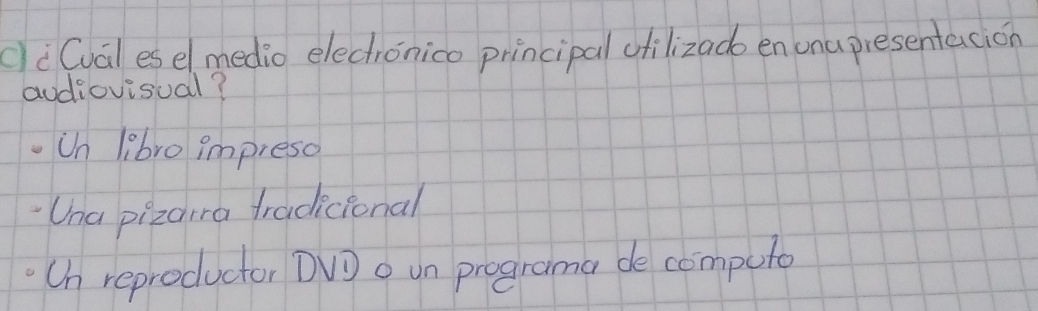 c) ¿Cuál es el medio electrónico principal utilizado en una presentación
audiovisual?
• Un libro impreso
• Una pizarra tradicional
• Un reproductor DVD o un programa de cómputo